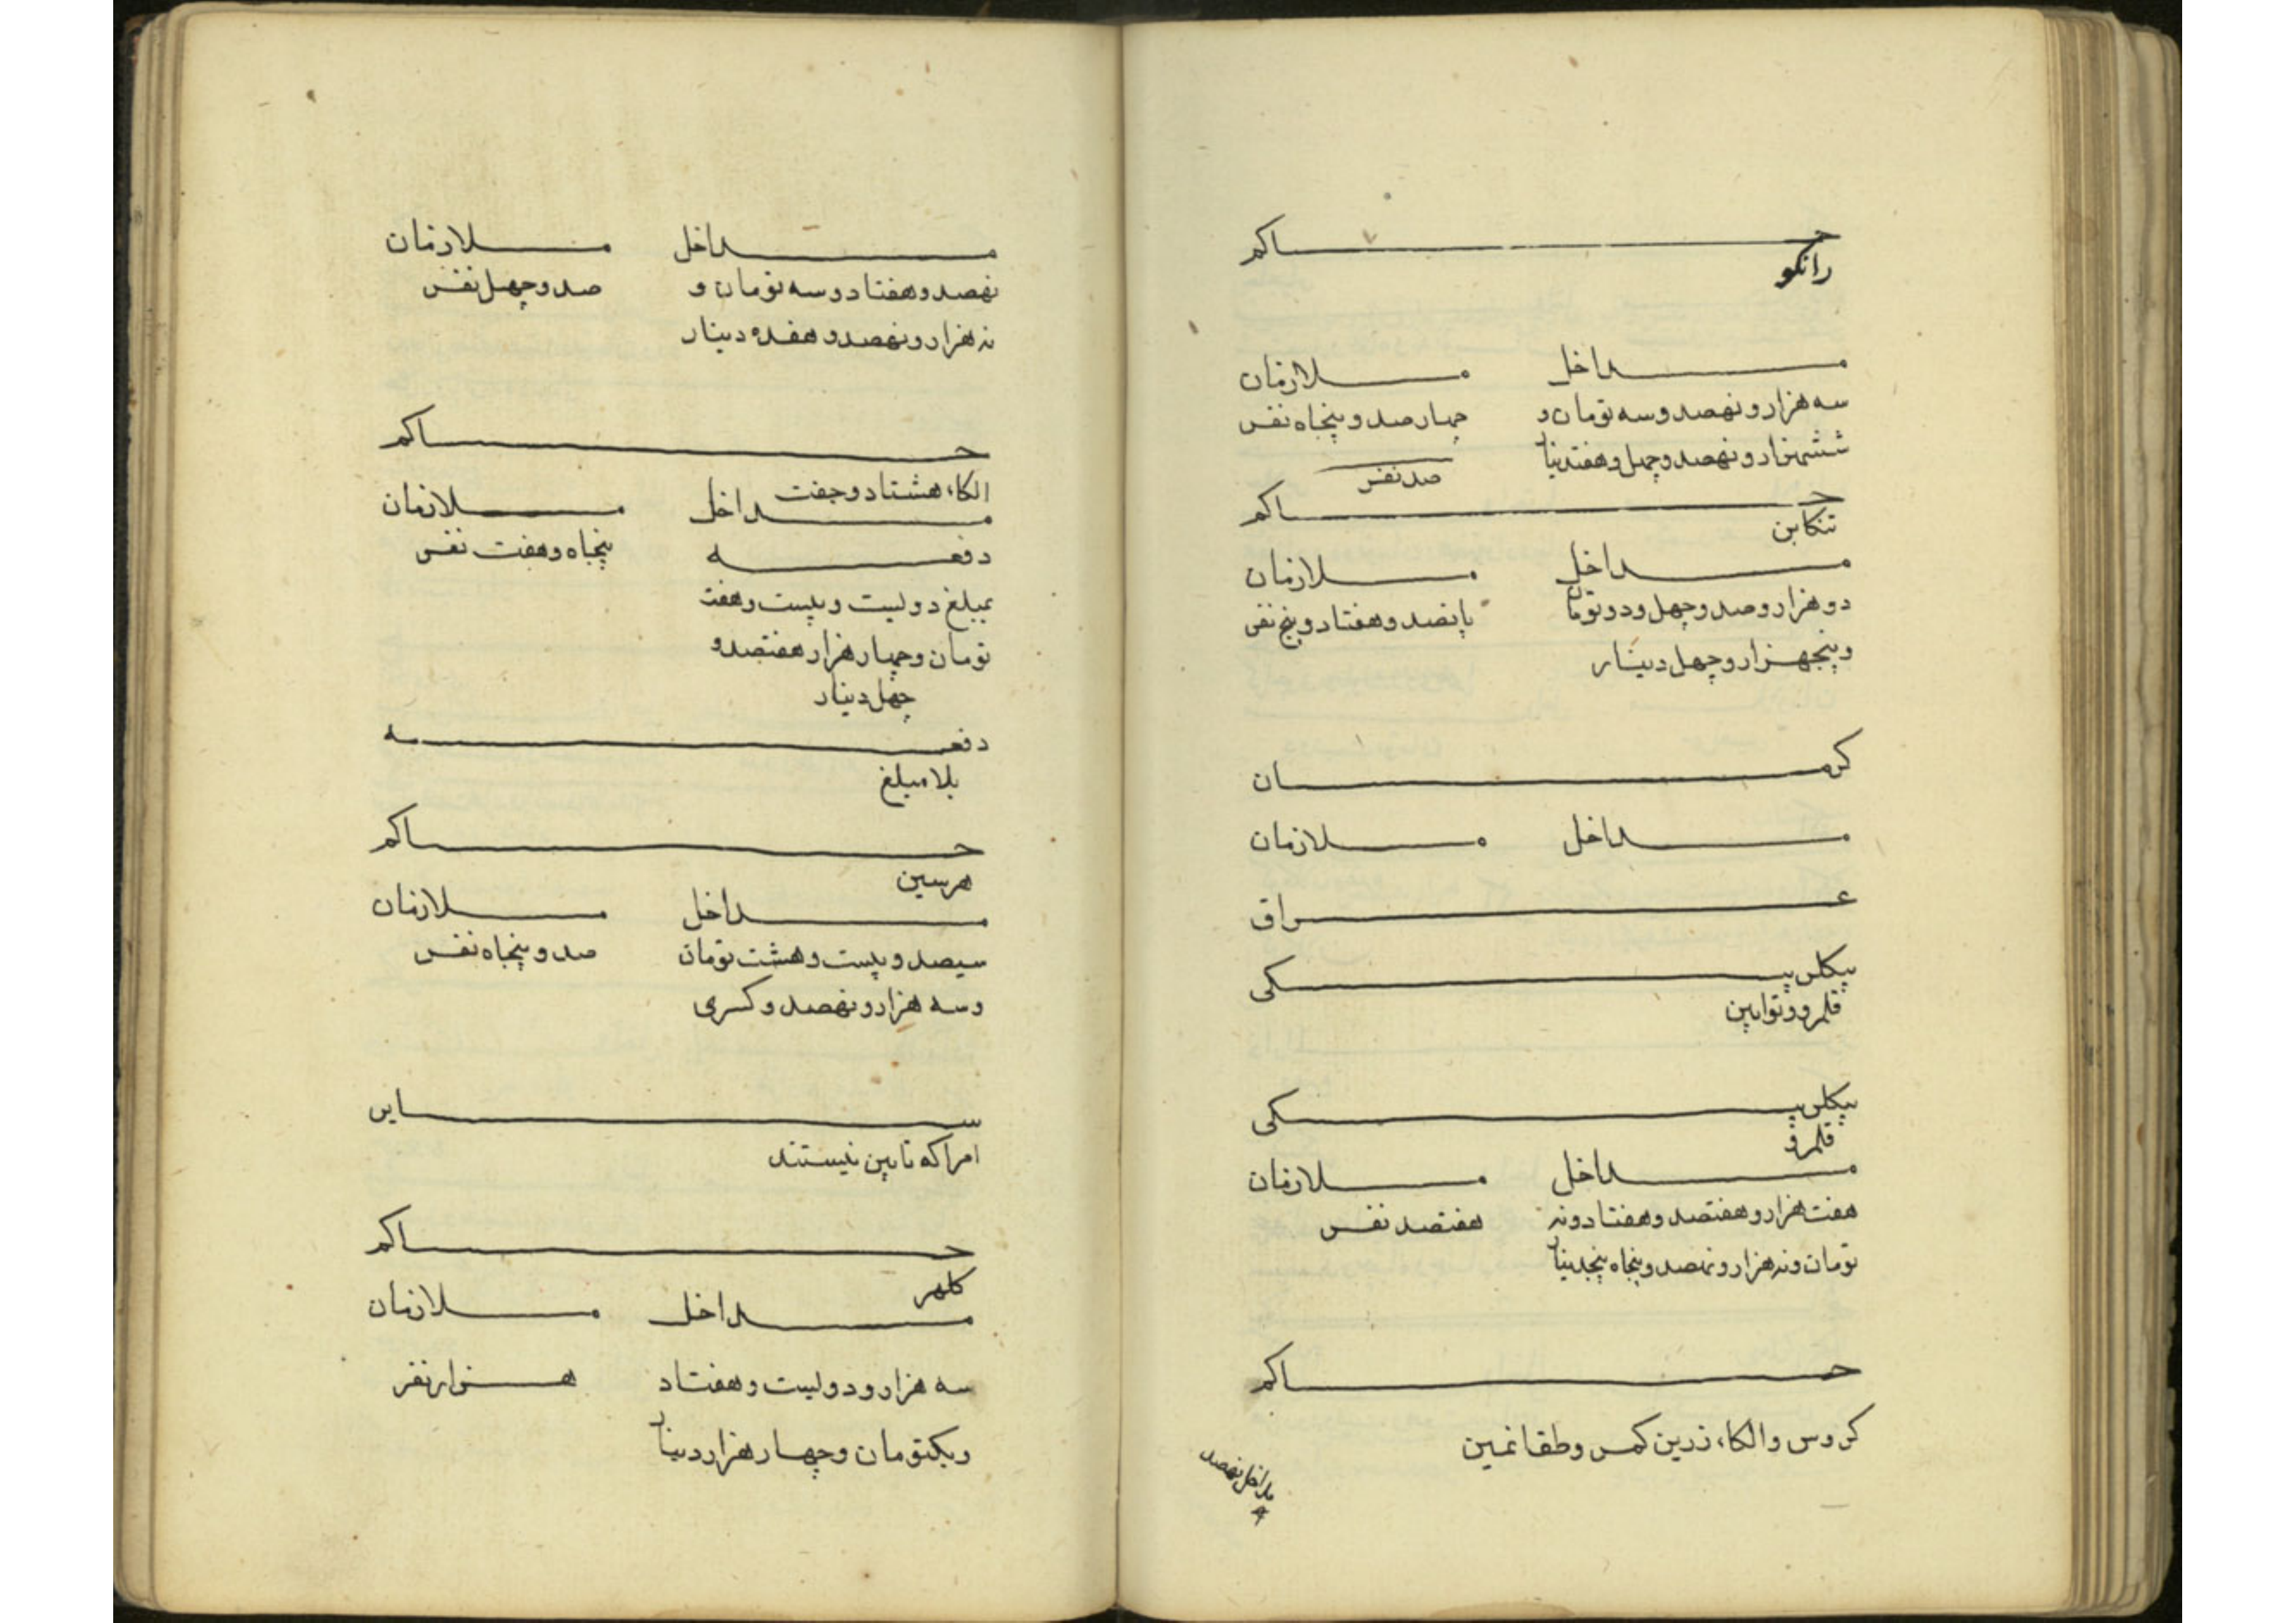 حاکم
رانکو
مداخل ملازمان
سه هزار و نهصد و سه تومان و چهار صد و پنجاه نفس
ششهزار و نهصد و چهل و هفتدینار صد نفس
حاکم
تنکابن
مداخل ملازمان
دو هزار و صد و چهل و دو تومان پانصد و هفتاد و پنج نفس
و پنجهزار و چهل دینار
کرمان
مداخل ملازمان
عراق
بیکلربیکی
قلمرو و توابین
بیکلربیکی
قلمرو
مداخل ملازمان
هفت هزار و هفتصد و هفتاد و نه هفتصد نفس
تومان و نه هزار و نهصد و پنجاه پنجدینار
حاکم
کروس و الکاء زرین کمر و طقانمین
مداخل نهصد
مداخل ملازمان
نهصد و هفتاد و سه تومان و صد و چهل نفس
نه هزار و نهصد و هفده دینار
حاکم
الکاء هشتاد و جفت
مداخل ملازمان
دفعه پنجاه و هفت نفس
بمبلغ دویست و بیست و هفت
تومان و چهار هزار هفتصد و
چهل دینار
دفعه
بلا مبلغ
حاکم
هرسین
مداخل ملازمان
سیصد و بیست و هشت تومان صد و پنجاه نفس
و سه هزار و نهصد و کسری
سایر
امرا که تابین نیستند
حاکم
کلهر
مداخل ملازمان
سه هزار و دویست و هفتاد هزار نفر
و یکتومان و چهار هزار دینار